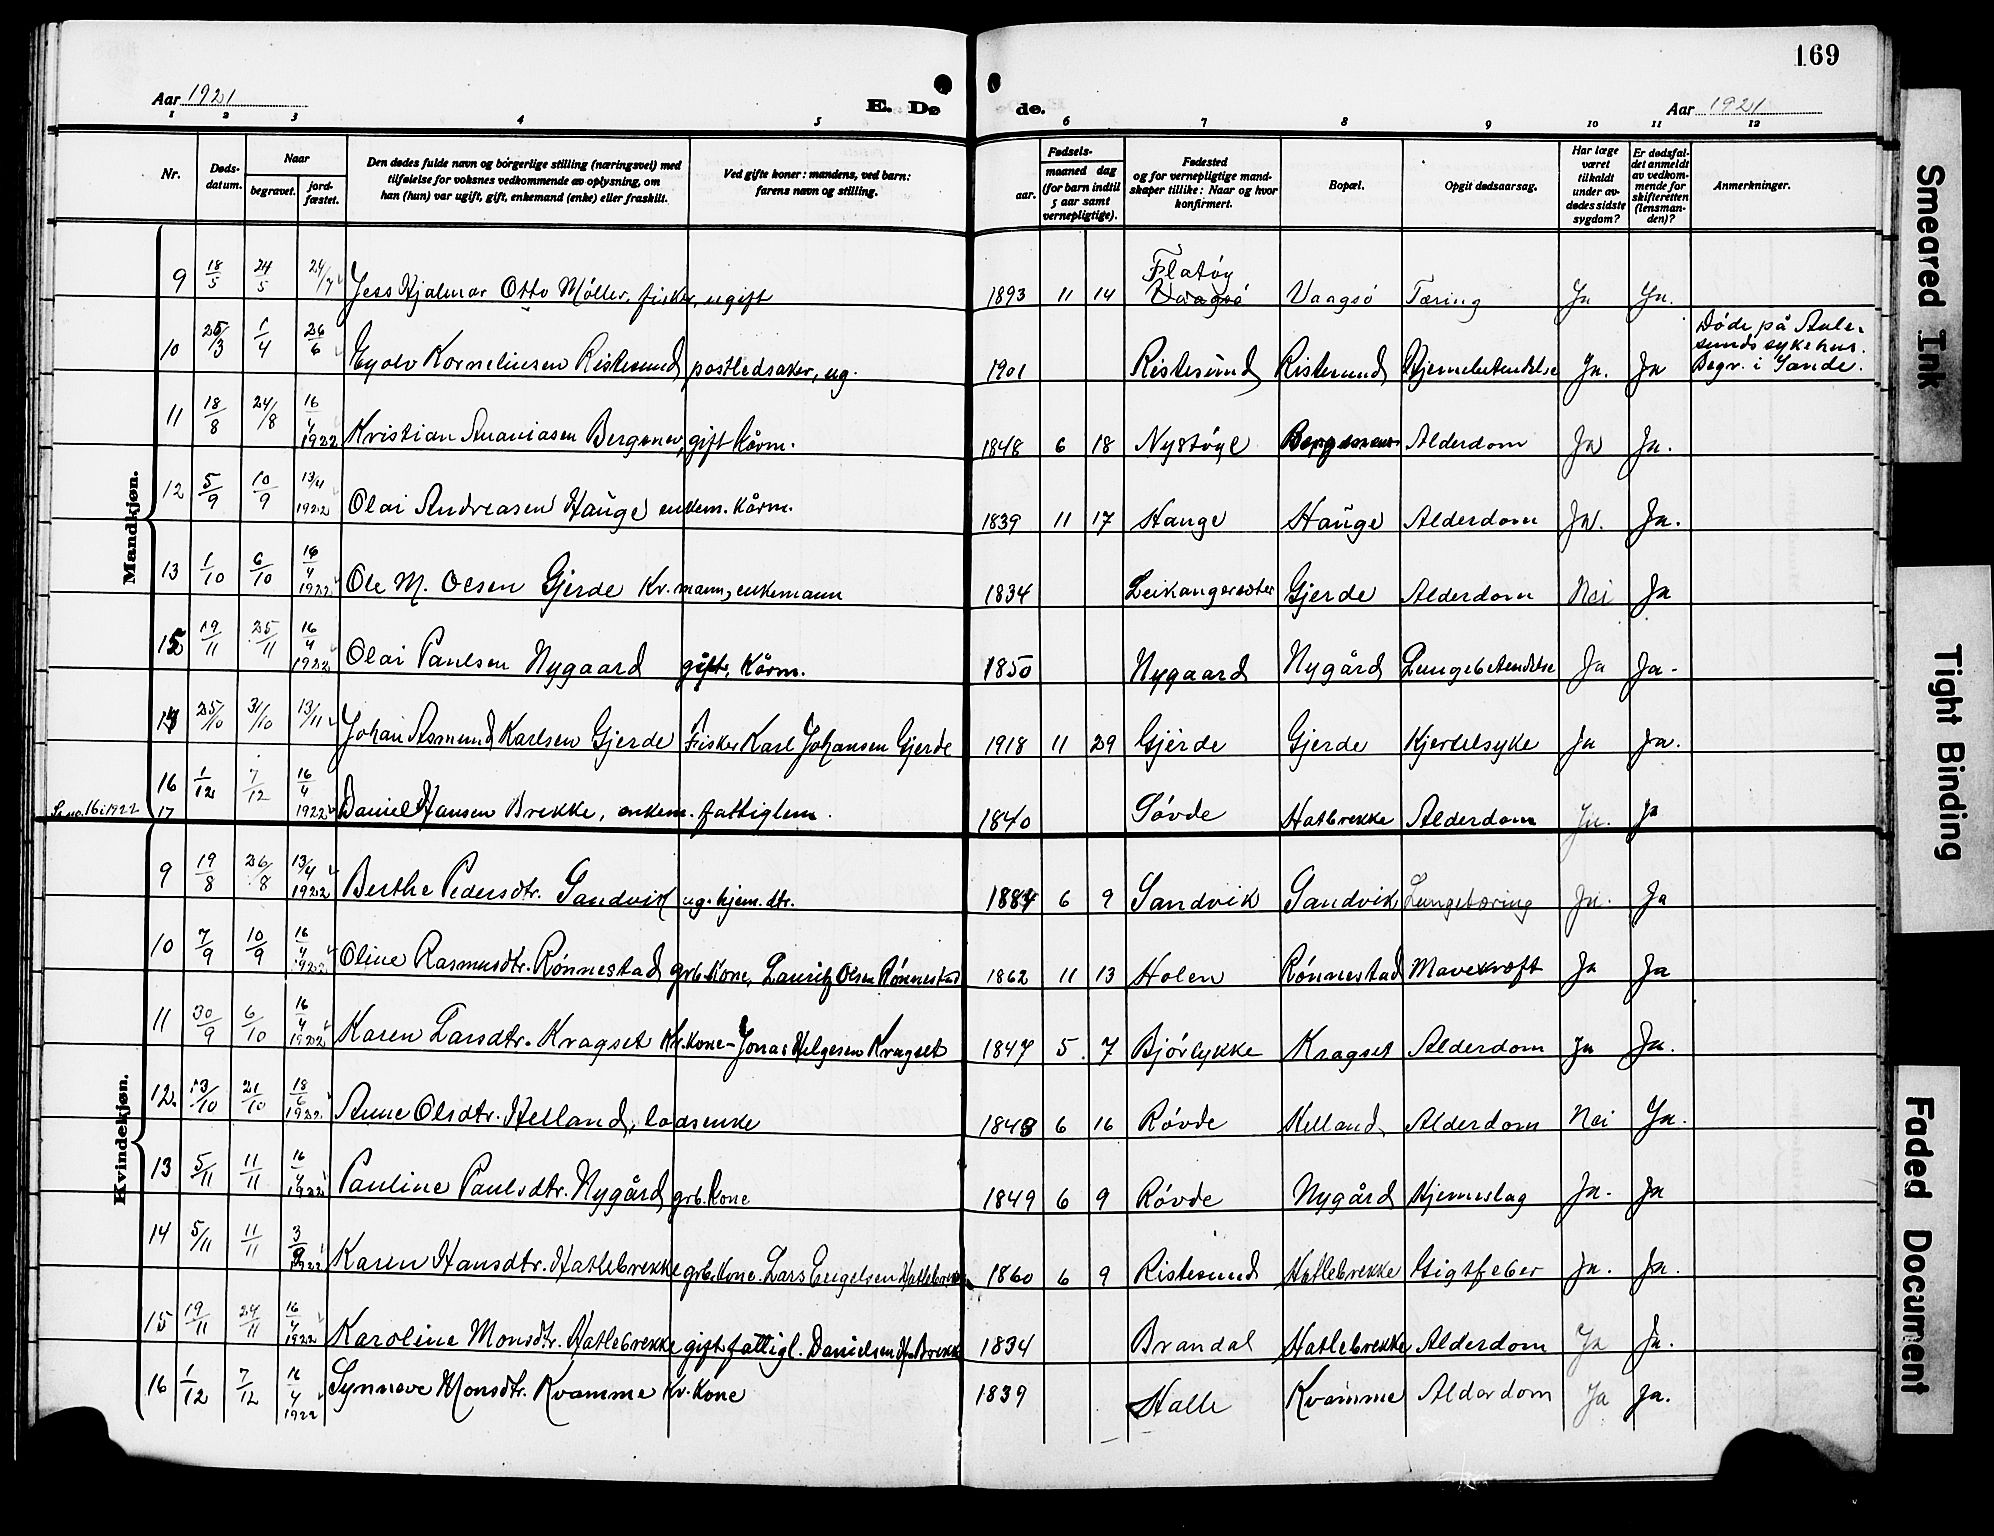 169
Aar 1921 E. Døde. Aar 1921
1 2 3 4 5 6 7 8 9 10 11 12
Nr. Døds-datum. Naar begravet. jord-fæstet. Den dødes fulde navn og borgerlige stilling (næringsvei) med tilføielse for voksnes vedkommende av oplysning, om han (hun) var ugift, gift, enkemand (enke) eller fraskilt. Ved gifte koner: mandens, ved barn: farens navn og stilling. Fødsels- aar. maaned dag (for barn indtil 5 aar samt vernepligtige). Fødested og for vernepligtige mandskaper tillike: Naar og hvor konfirmert. Bopæl. Opgit dødsaarsag. Har læge været tilkaldt under avdødes sidste sygdom? Er dødsfaldet anmeldt av vedkommende for skifteretten (lensmanden)? Anmerkninger.
Mandkjøn.
9 18/5 24/5 24/7 Jess Hjalmar Otto Møller, fisker, ugift 1893 11 14 Flatøy Vaagsø Vaagsø Tæring Ja Ja.
10 25/3 1/4 26/6 Eyolv Korneliusen Ristesund, postledsaker, ug. 1901 Ristesund Ristesund Hjernebetendelse Ja. Ja Døde på Aalesunds sykehus. Begr. i Sande.
11 18/8 24/8 16/4 1922 Kristian Ananiasen Bergsnev, gift Kårm. 1848 6 18 Nystøyl Alderdom Ja Ja.
12 5/9 10/9 13/4 1922 Olai Andreasen Hauge enkem. Kårm. 1839 11 17 Hauge Hauge Alderdom Ja. Ja.
13 1/10 6/10 16/4 1922 Ole M. Olsen Gjerde Kv. mann, enkemann 1834 Leikangersæter Gjerde Alderdom Nei Ja
15 19/11 25/11 16/4 1922 Olai Paulsen Nygaard gift, Kårm. 1850 Nygaard Nygård Lungebetendelse Ja Ja-
14 25/10 31/10 13/11 Johan Asmund Karlsen Gjerde Fisker Karl Johansen Gjerde 1918 11 29 Gjerde Gjerde Kjertelsyke Ja Ja.
16 1/12 7/12 16/4 1922 Daniel Hansen Brekke, enkem. fattiglem. 1840 Søvde Hatlebrekke Alderdom Ja. Ja
Se no. 16 i 1922 17
Kvindekjøn.
9 19/8 26/8 13/4 1922 Berthe Pedersdtr. Sandvik ug. hjem. dtr. 1884 6 9 Sandvik Sandvik Lungetæring Ja. Ja
10 7/9 10/9 16/4 1922 Oline Rasmusdtr. Rønnestad grb. Kone, Lauritz Olsen Rønnestad 1862 11 13 Holen Rønnestad Mavekræft Ja Ja
11 30/9 6/10 16/4 1922 Karen Larsdtr. Kragset Kv. Kone - Jonas Helgesen Kragset 1847 5. 7 Bjørlykke Kragset Alderdom Ja Ja.
12. 13/10 21/10 18/6 1922 Anne Olsdtr. Helland, losenke 1848 6 16 Røvde Helland, Alderdom Nei Ja.
13 5/11 11/11 16/4 1922 Pauline Paulsdtr. Nygård grb. Kone 1849 6 9 Røvde Nygård Hjerneslag Ja. Ja
14 5/11 11/11 3/9 1922 Karen Hansdtr. Hatlebrekke grb. Kone. Lars Engelsen Hatlebrekke 1860 6 9 Ristesund Hatlebrekke Gigtfeber Ja. Ja.
15 19/11 24/11 16/4 1922 Karoline Monsdtr. Hatlebrekke gift fattigl. Danielsen H. Brekke 1834 Brandal Hatlebrekke Alderdom Ja Ja.
16 1/12 7/12 16/4 1922 Synneve Monsdtr. Kvamme Kv. Kone 1839 Halle Kvamme Alderdom Ja Ja.
Smeared Ink
Tight Binding
Faded Document